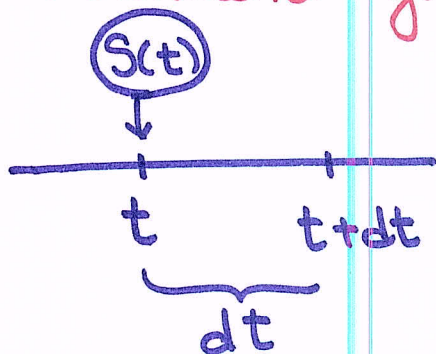 S(t)
t t+dt
dt